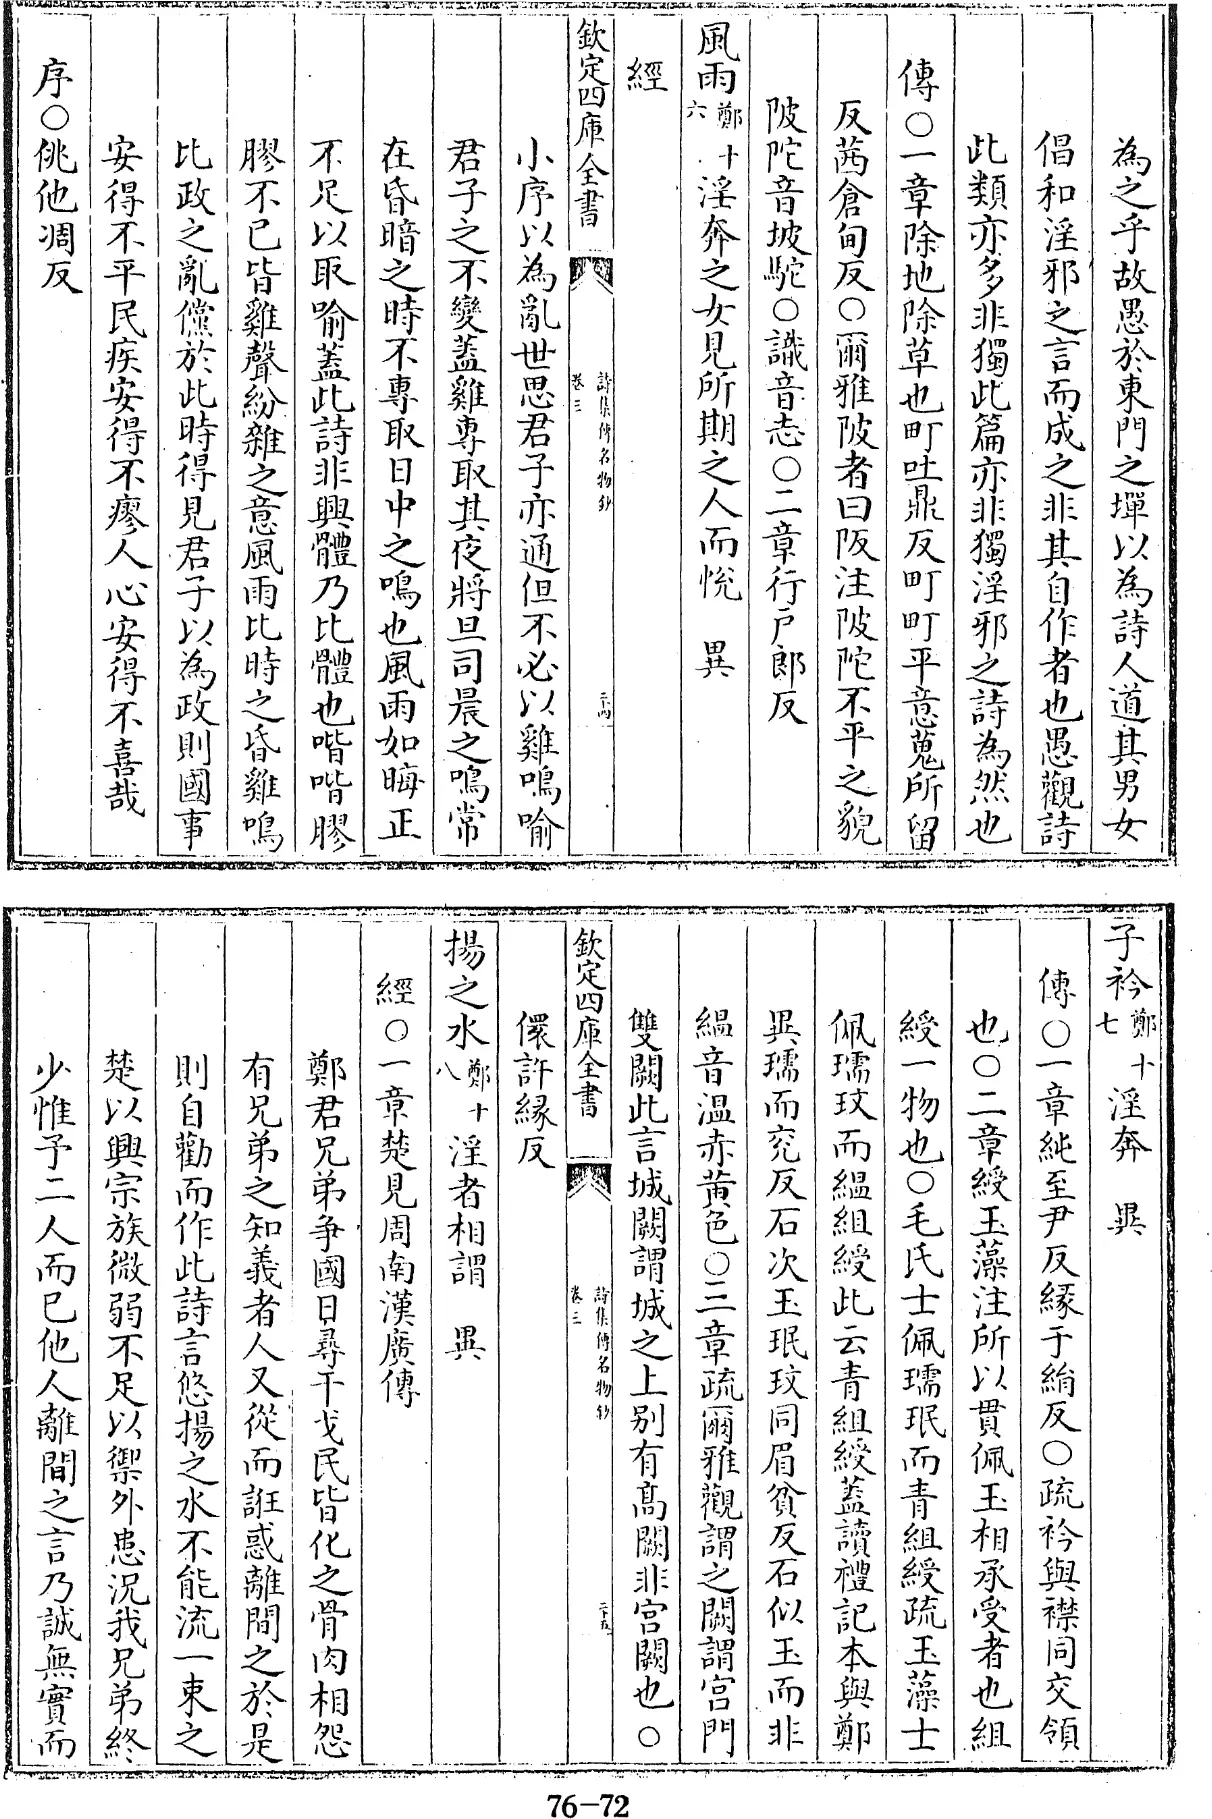 為之乎故愚於東門之墠以為詩人道其男女
倡和淫邪之言而成之非其自作者也愚觀詩
此類亦多非獨此篇亦非獨淫邪之詩為然也
傳○一章除地除草也町吐鼎反町町平意蒐所留
反茜倉甸反○爾雅陂者曰阪注陂陀不平之貌
陂陀音坡駝○識音志○二章行戶郎反
風雨鄭十六淫奔之女見所期之人而悅 異
經
欽定四庫全書 詩集傳名物鈔 卷三 二十四
小序以為亂世思君子亦通但不必以雞鳴喻
君子之不變蓋雞專取其夜將旦司晨之鳴常
在昏暗之時不專取日中之鳴也風雨如晦正
不足以取喻蓋此詩非興體乃比體也喈喈膠
膠不已皆雞聲紛雜之意風雨比時之昏雞鳴
比政之亂儻於此時得見君子以為政則國事
安得不平民疾安得不瘳人心安得不喜哉
序○佻他凋反
子衿鄭十七淫奔 異
傳○一章純至尹反緣于絹反○疏衿與襟同交領
也○二章綬玉藻注所以貫佩玉相承受者也組
綬一物也○毛氏士佩瓀珉而青組綬疏玉藻士
佩瓀玟而縕組綬此云青組綬蓋讀禮記本與鄭
異瓀而兖反石次玉珉玟同眉貧反石似玉而非
縕音溫赤黃色○三章疏爾雅觀謂之闕謂宮門
雙闕此言城闕謂城之上别有高闕非宮闕也○
欽定四庫全書 詩集傳名物鈔 卷三 二十五
儇許緣反
揚之水鄭十八淫者相謂 異
經○一章楚見周南漢廣傳
鄭君兄弟爭國日尋干戈民皆化之骨肉相怨
有兄弟之知義者人又從而誑惑離間之於是
則自勸而作此詩言悠揚之水不能流一束之
楚以興宗族微弱不足以禦外患況我兄弟終
少惟予二人而已他人離間之言乃誠無實而
76-72